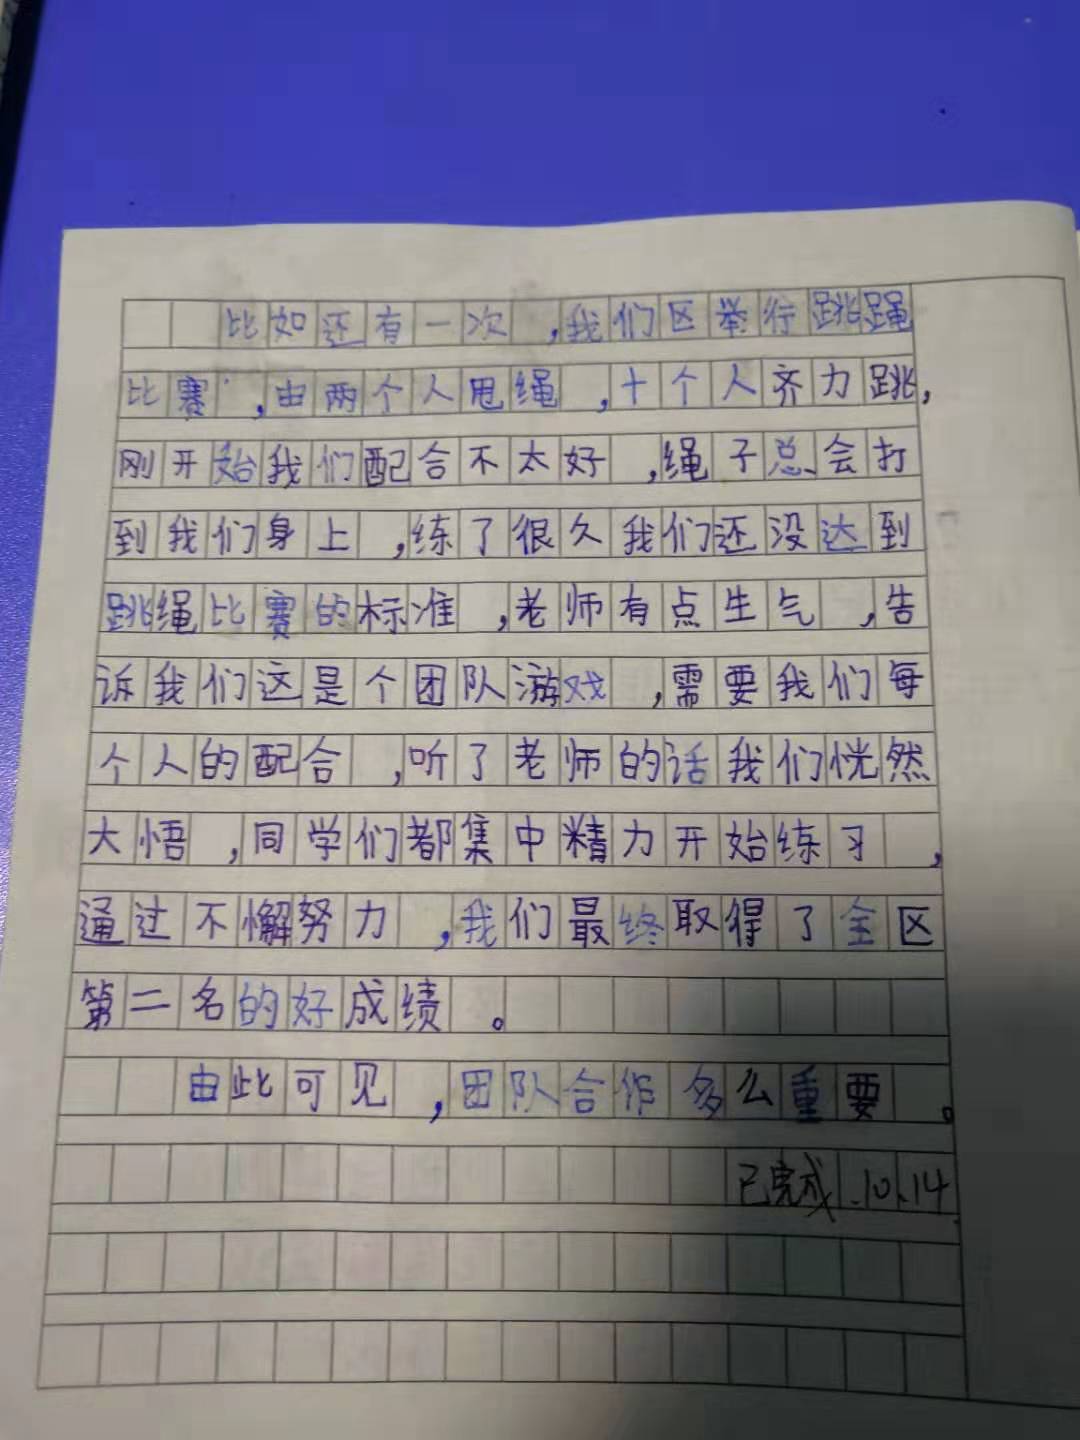 比如还有一次,我们区举行跳绳
比赛,由两个人甩绳,十个人齐力跳,
刚开始我们配合不太好,绳子总会打
到我们身上,练了很久我们还没达到
跳绳比赛的标准,老师有点生气,告
诉我们这是个团队游戏,需要我们每
个人的配合,听了老师的话我们恍然
大悟,同学们都集中精力开始练习,
通过不懈努力,我们最终取得了全区
第二名的好成绩。
由此可见,团队合作多么重要。
已完成.10.14